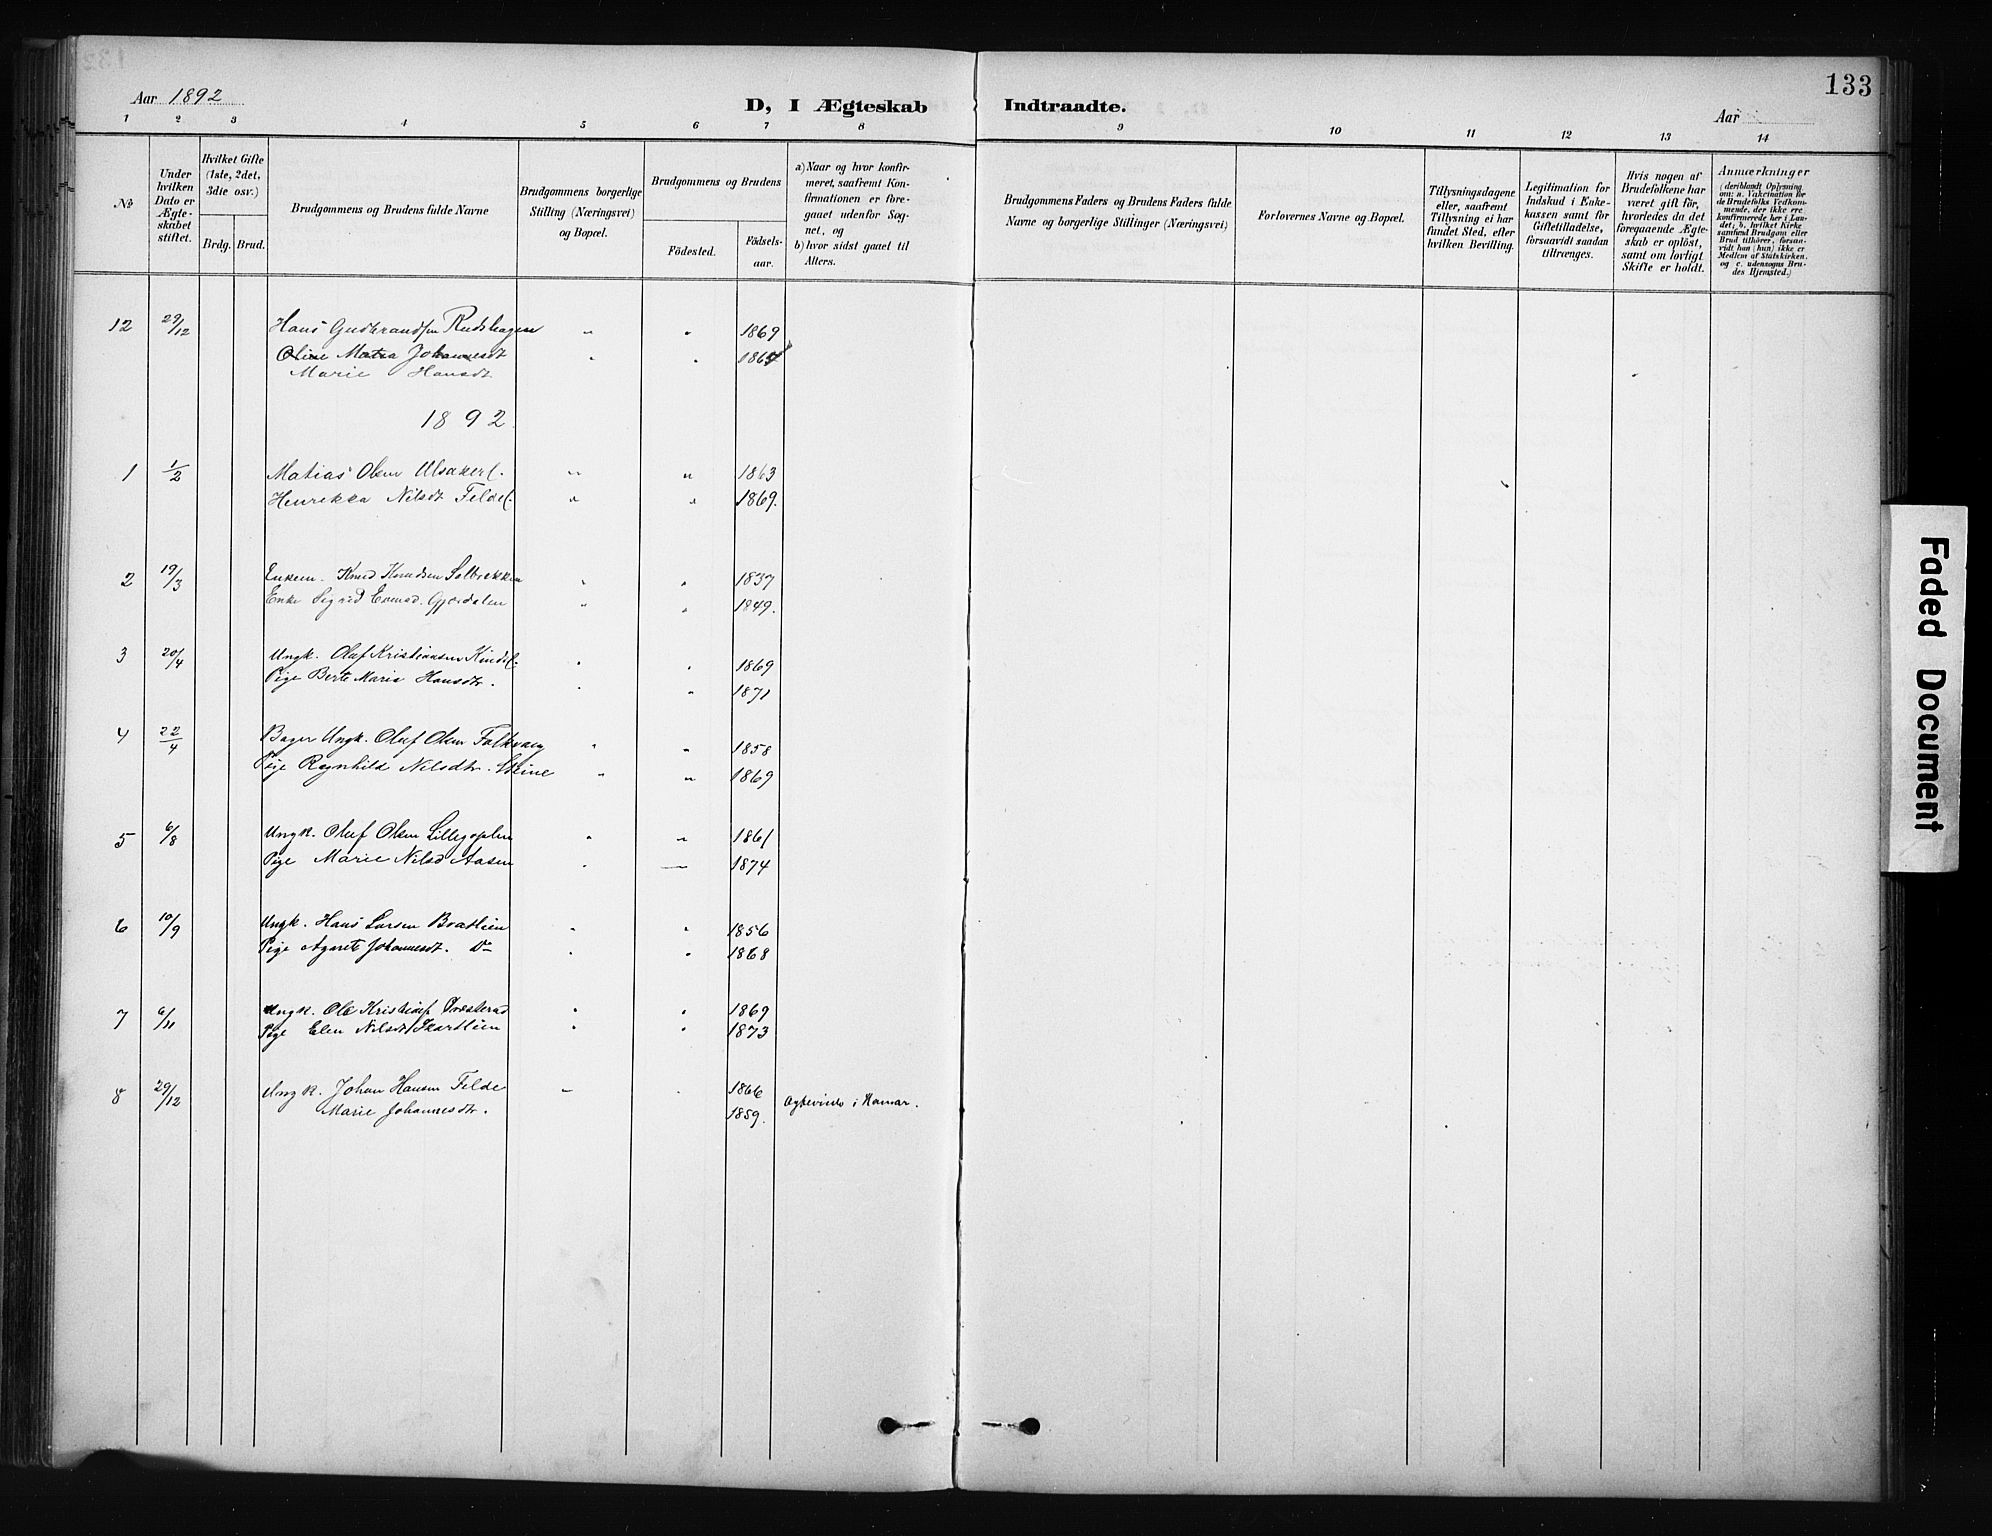 133
Aar 1892
D, I Ægteskab Indtraadte.
Aar
1 2 3 4 5 6 7 8 9 10 11 12 13 14
No.
Under hvilken Dato er Ægteskabet stiftet.
Hvilket Gifte (1ste, 2det, 3die osv.)
Brdg. Brud.
Brudgommens og Brudens fulde Navne
Brudgommens borgerlige Stilling (Næringsvei) og Bopæl.
Brudgommens og Brudens
Födested.
Födsels-aar.
a) Naar og hvor konfirmeret, saafremt Konfirmationen er foregaaet udenfor Sognet, og
b) hvor sidst gaaet til Alters.
Brudgommens Faders og Brudens Faders fulde Navne og borgerlige Stillinger (Næringsvei)
Forlovernes Navne og Bopæl.
Tillysningsdagene eller, saafremt Tillysning ei har fundet Sted, efter hvilken Bevilling.
Legitimation for Indskud i Enkekassen samt for Giftetilladelse, forsaavidt saadan tiltrænges.
Hvis nogen af Brudefolkene har været gift før, hvorledes da det foregaaende Ægteskab er oplöst, samt om lovligt Skifte er holdt.
Anmærkninger
(deriblandt Oplysning om: a. Vakcination for de Brudefolks Vedkommende, der ikke ere konfirmerede her i Landet; b. hvilket Kirkesamfund Brudgom eller Brud tilhörer, forsaavidt han (hun) ikke er Medlem af Statskirken. og c. udensogns Brudes Hjemsted.)
12 29/12 Hans Gudbrandsen Rudshagen " " 1869
Oline Matea Johannesdt " " 1867
Marie Hansdt
1892.
1 1/2 Matias Olsen Ulsakerl. " " 1863
Henrikka Nilsdt Feldel. " " 1869.
2 19/3 Enkem. Knud Knudsen Solbrekken " " 1837
Enke Sigrid Evensd. Gjerdalen " " 1849.
3 20/4 Ungk. Oluf Kristiansen Kindel. " " 1869
Pige Berte Marie Hansdtr. " " 1871
4 22/4 Bager Ungk. Oluf Olsen Falkvang " " 1858
Pige Ragnhild Nilsdtr. Steine " " 1869
5 6/8 Ungk. Oluf Olsen Lillegoplen " " 1861
Pige Marie Nilsd Aasen " — 1874
6 10/9 Ungk. Hans Larsen Bratlien " " 1856
Pige Agnete Johannesdt. Do " " 1868
7 6/11 Ungk. Ole Kristians Presterud " " 1869
Pige Elen Nilsdt Skartlien " " 1873
8 29/12 Ungk. Johan Hansen Felde " " 1866
Marie Johannesdtr. 1859. Ægteviede i Hamar.
Faded Document